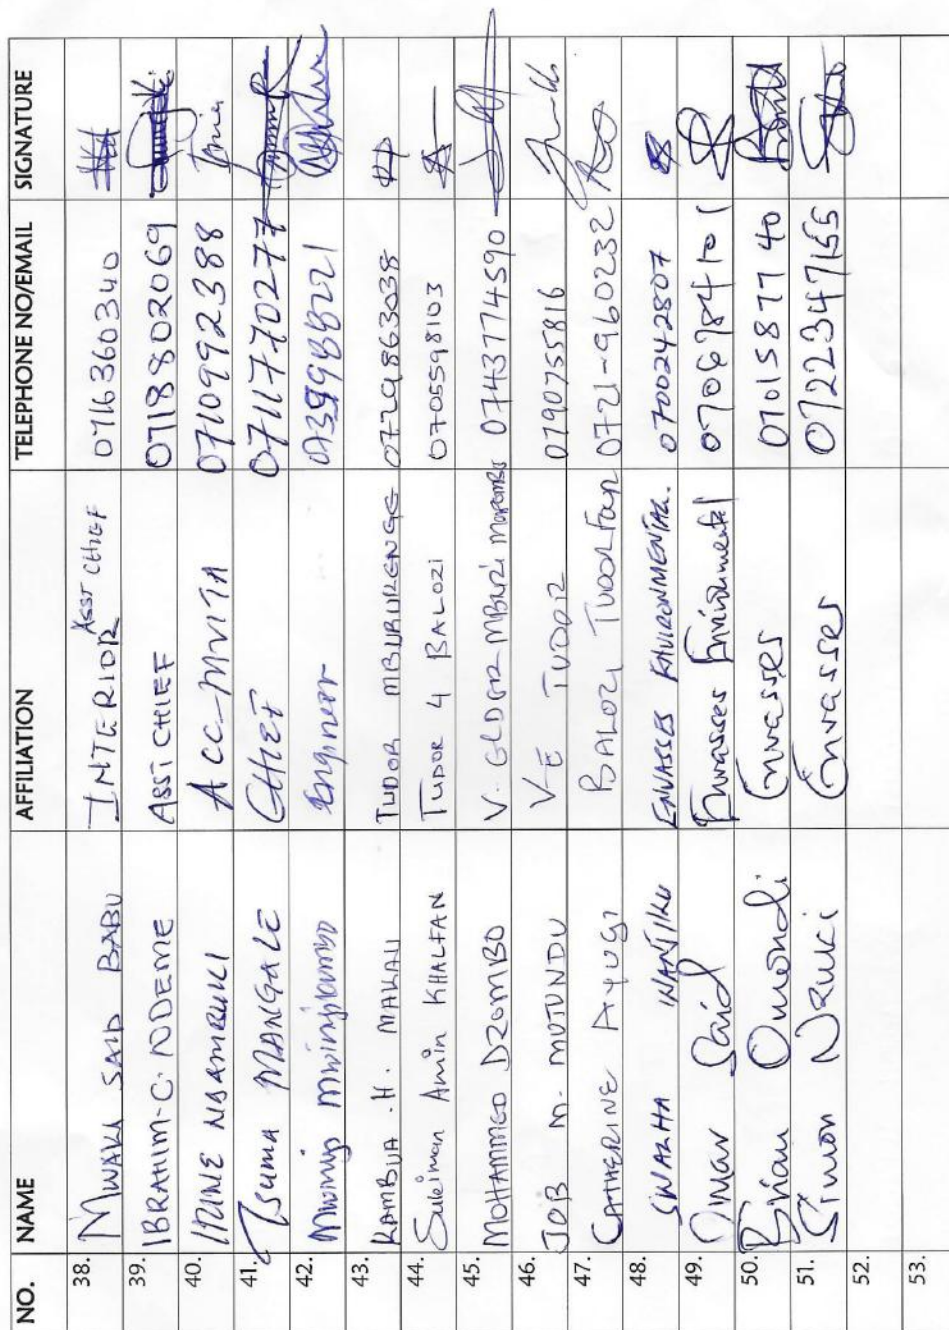 NO. NAME AFFILIATION TELEPHONE NO/EMAIL SIGNATURE
38. MWAKA SAID BABU INTERIOR ASST CHIEF 0716360340
39. IBRAHIM-C. NDEME ASSi CHIEF 0718802069
40. IRINE ACC-MVITA 0710992388
41. Tsuma MANGALE CHIEF 0711770277
42. Engineer
43. KAMBUA .H. MAKAU TUDOR MBURUKENGE 0729863038
44. Suleiman Amin KHALFAN TUDOR 4 BALOZI 0705598103
45. MOHAMMED DZOMBO V. ELDER 0743774590
46. JOB M. MUTUNDU V-E TUDOR 0790755816
47. CATHERINE AYUGI BALOZI TUDOR Four 0721-960232
48. WANJIKU ENVASSES ENVIRONMENTAL. 0700242807
49. Omar Said Envasses Environmental
50. Brian Omondi Envasses 0701587740
51. Simon Nzuki Envasses 0722347155
52.
53.